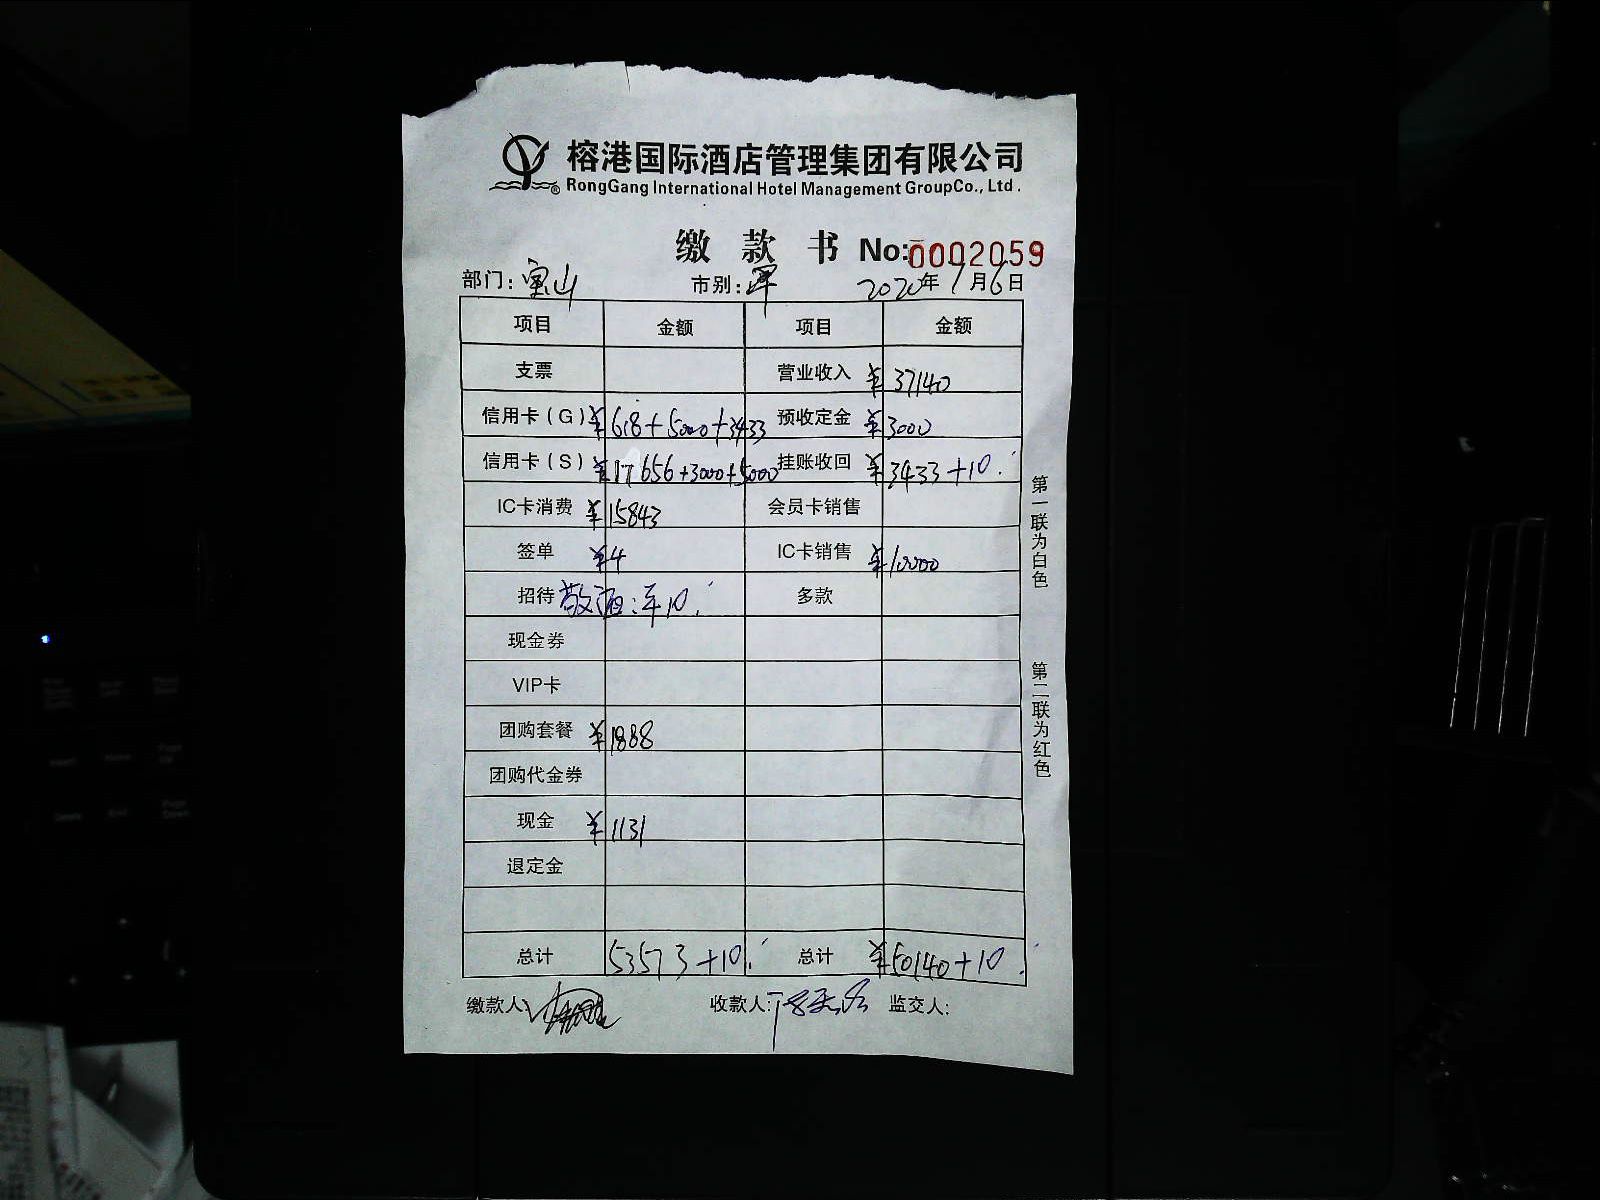 榕港国际酒店管理集团有限公司
RongGang International Hotel Management GroupCo., Ltd.
缴款书 No:0002059
部门:宝山 市别: 2020年7月6日
项目 金额 项目 金额
支票 营业收入 ¥37140
信用卡(G) ¥618+5000+3433 预收定金 ¥3000
信用卡(S) ¥17656+3000+5000 挂账收回 ¥3433+10.
IC卡消费 ¥15843 会员卡销售
签单 ¥4 IC卡销售 ¥10000
招待 10. 多款
现金券
VIP卡
团购套餐 ¥1888
团购代金券
现金 ¥1131
退定金
总计 53573+10. 总计 ¥50140+10.
缴款人: 收款人: 监交人:
第一联为白色
第二联为红色